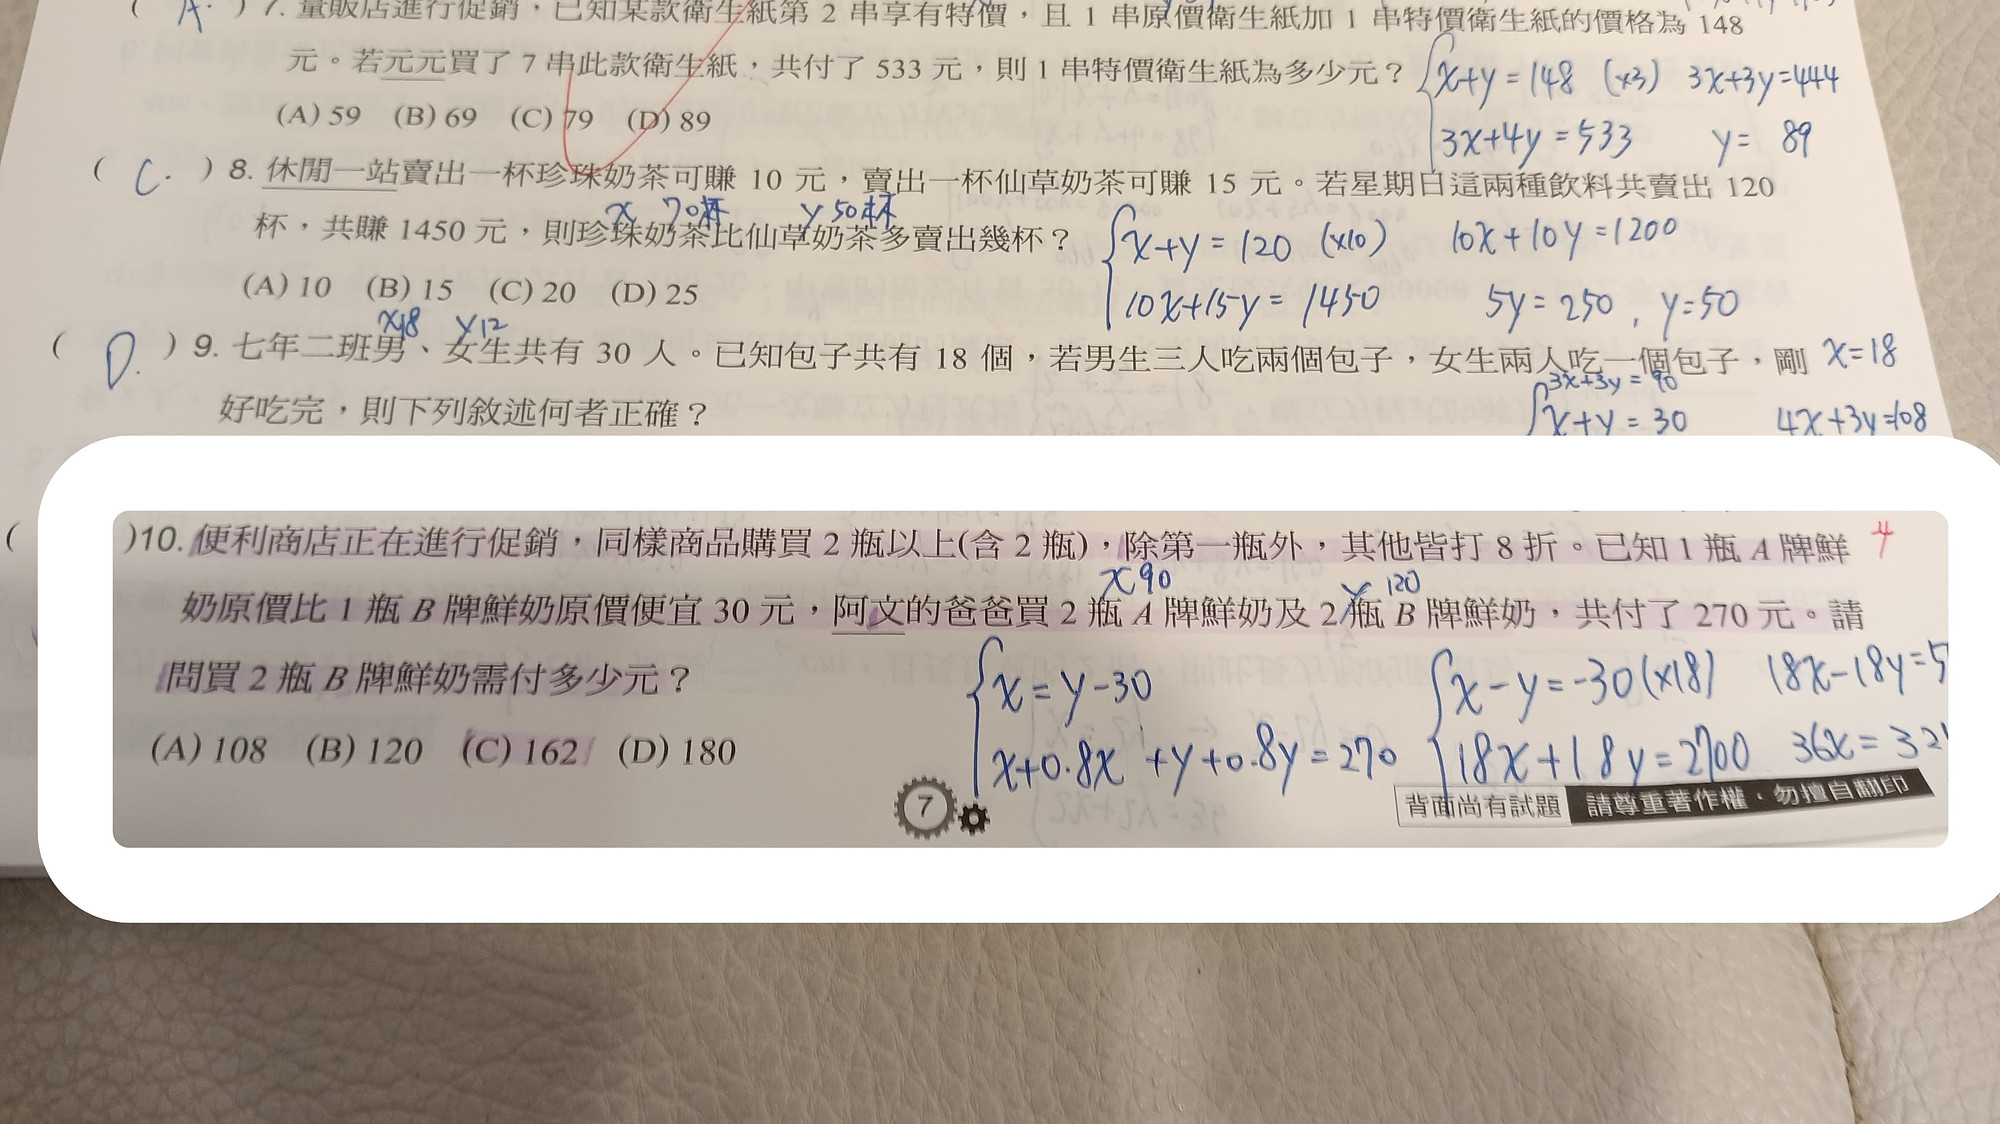 ( A. ) 7. 量販店進行促銷，已知某款衛生紙第 2 串享有特價，且 1 串原價衛生紙加 1 串特價衛生紙的價格為 148
元。若元元買了 7 串此款衛生紙，共付了 533 元，則 1 串特價衛生紙為多少元？
x+y=148 (x3) 3x+3y=444
(A) 59 (B) 69 (C) 79 (D) 89
3x+4y=533 y= 89
( C. ) 8. 休閒一站賣出一杯珍珠奶茶可賺 10 元，賣出一杯仙草奶茶可賺 15 元。若星期日這兩種飲料共賣出 120
x 70杯 y 50杯
杯，共賺 1450 元，則珍珠奶茶比仙草奶茶多賣出幾杯？
x+y=120 (x10) 10x+10y=1200
(A) 10 (B) 15 (C) 20 (D) 25
10x+15y=1450 5y=250, y=50
x18 y12
( D. ) 9. 七年二班男、女生共有 30 人。已知包子共有 18 個，若男生三人吃兩個包子，女生兩人吃一個包子，剛
x=18
3x+3y=90
好吃完，則下列敘述何者正確？
x+y=30 4x+3y=108
( )10. 便利商店正在進行促銷，同樣商品購買 2 瓶以上(含 2 瓶)，除第一瓶外，其他皆打 8 折。已知 1 瓶 A 牌鮮
x90 y 120
奶原價比 1 瓶 B 牌鮮奶原價便宜 30 元，阿文的爸爸買 2 瓶 A 牌鮮奶及 2 瓶 B 牌鮮奶，共付了 270 元。請
問買 2 瓶 B 牌鮮奶需付多少元？
x=y-30 x-y=-30(x18) 18x-18y=5
(A) 108 (B) 120 (C) 162 (D) 180
x+0.8x+y+0.8y=270 18x+18y=2700 36x=32
7
背面尚有試題 請尊重著作權，勿擅自翻印